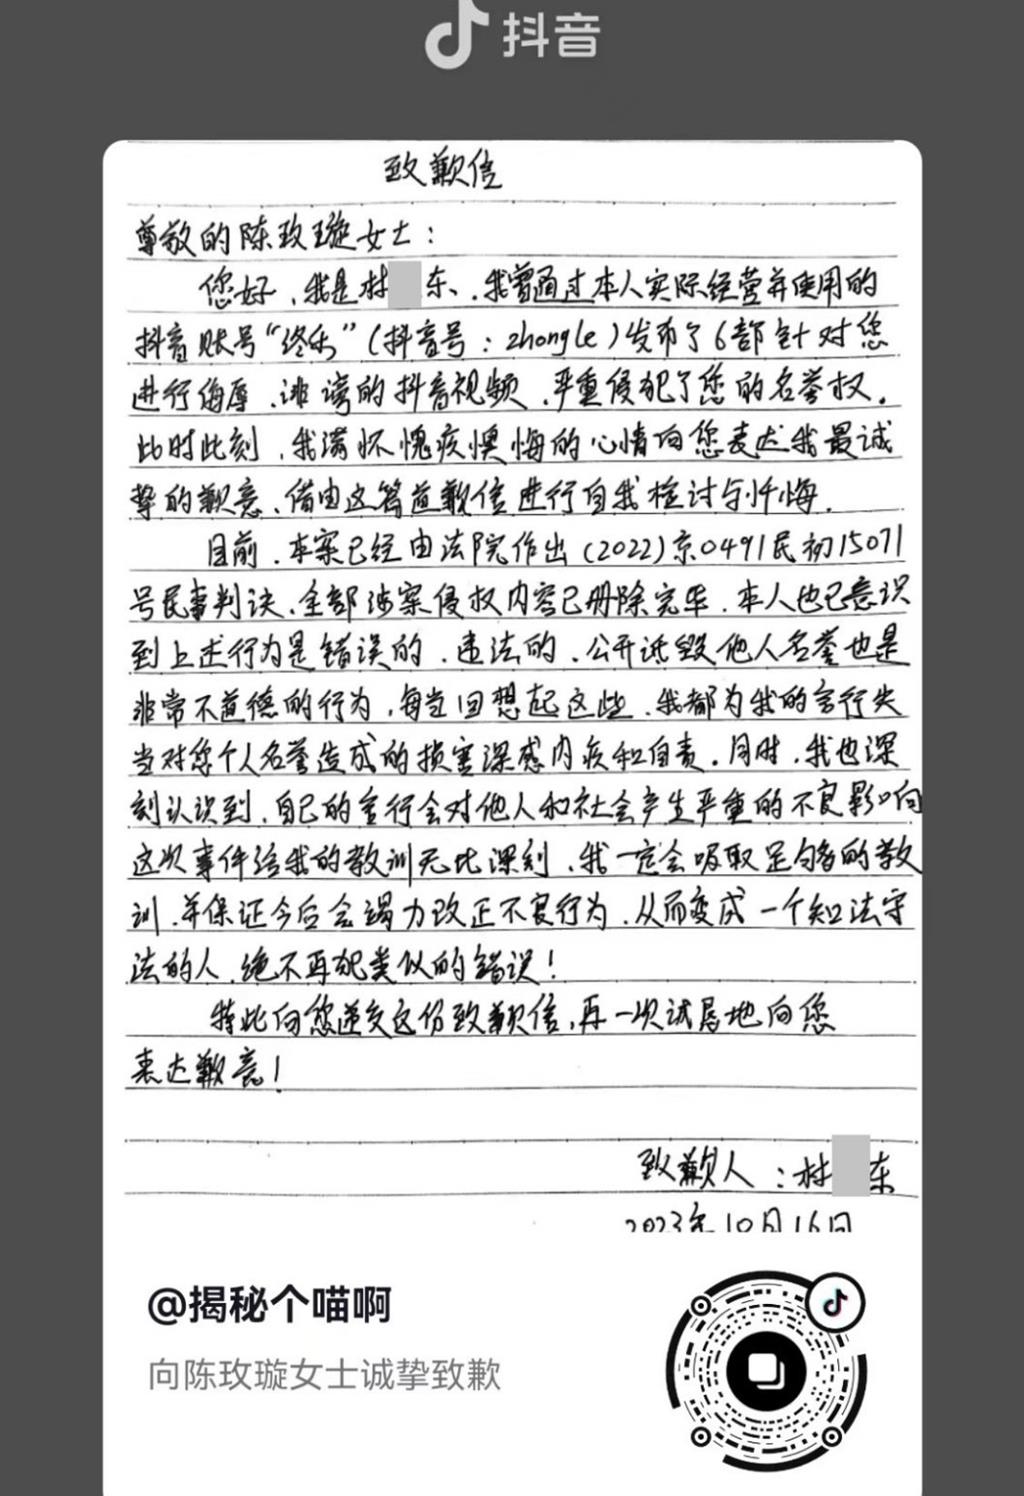 抖音
致歉信
尊敬的陈玫璇女士：
您好，我是林 东、我曾通过本人实际经营并使用的
抖音账号“终乐”（抖音号：zhongle）发布了6部针对您
进行侮辱、诽谤的抖音视频，严重侵犯了您的名誉权。
此时此刻，我满怀愧疚懊悔的心情向您表达我最诚
挚的歉意、借由这篇道歉信进行自我检讨与忏悔。
目前，本案已经由法院作出（2022）京0491民初15071
号民事判决、全部涉案侵权内容已删除完毕，本人也已意识
到上述行为是错误的、违法的、公开诋毁他人名誉也是
非常不道德的行为，每当回想起这些、我都为我的言行失
当对您个人名誉造成的损害深感内疚和自责。同时，我也深
刻认识到，自己的言行会对他人和社会产生严重的不良影响
这次事件给我的教训无比深刻、我一定会吸取足够的教
训，并保证今后会竭力改正不良行为、从而变成一个知法守
法的人，绝不再犯类似的错误！
特此向您递交这份致歉信，再一次诚恳地向您
表达歉意！
致歉人：林 东
2023年10月16日
@揭秘个喵啊
向陈玫璇女士诚挚致歉